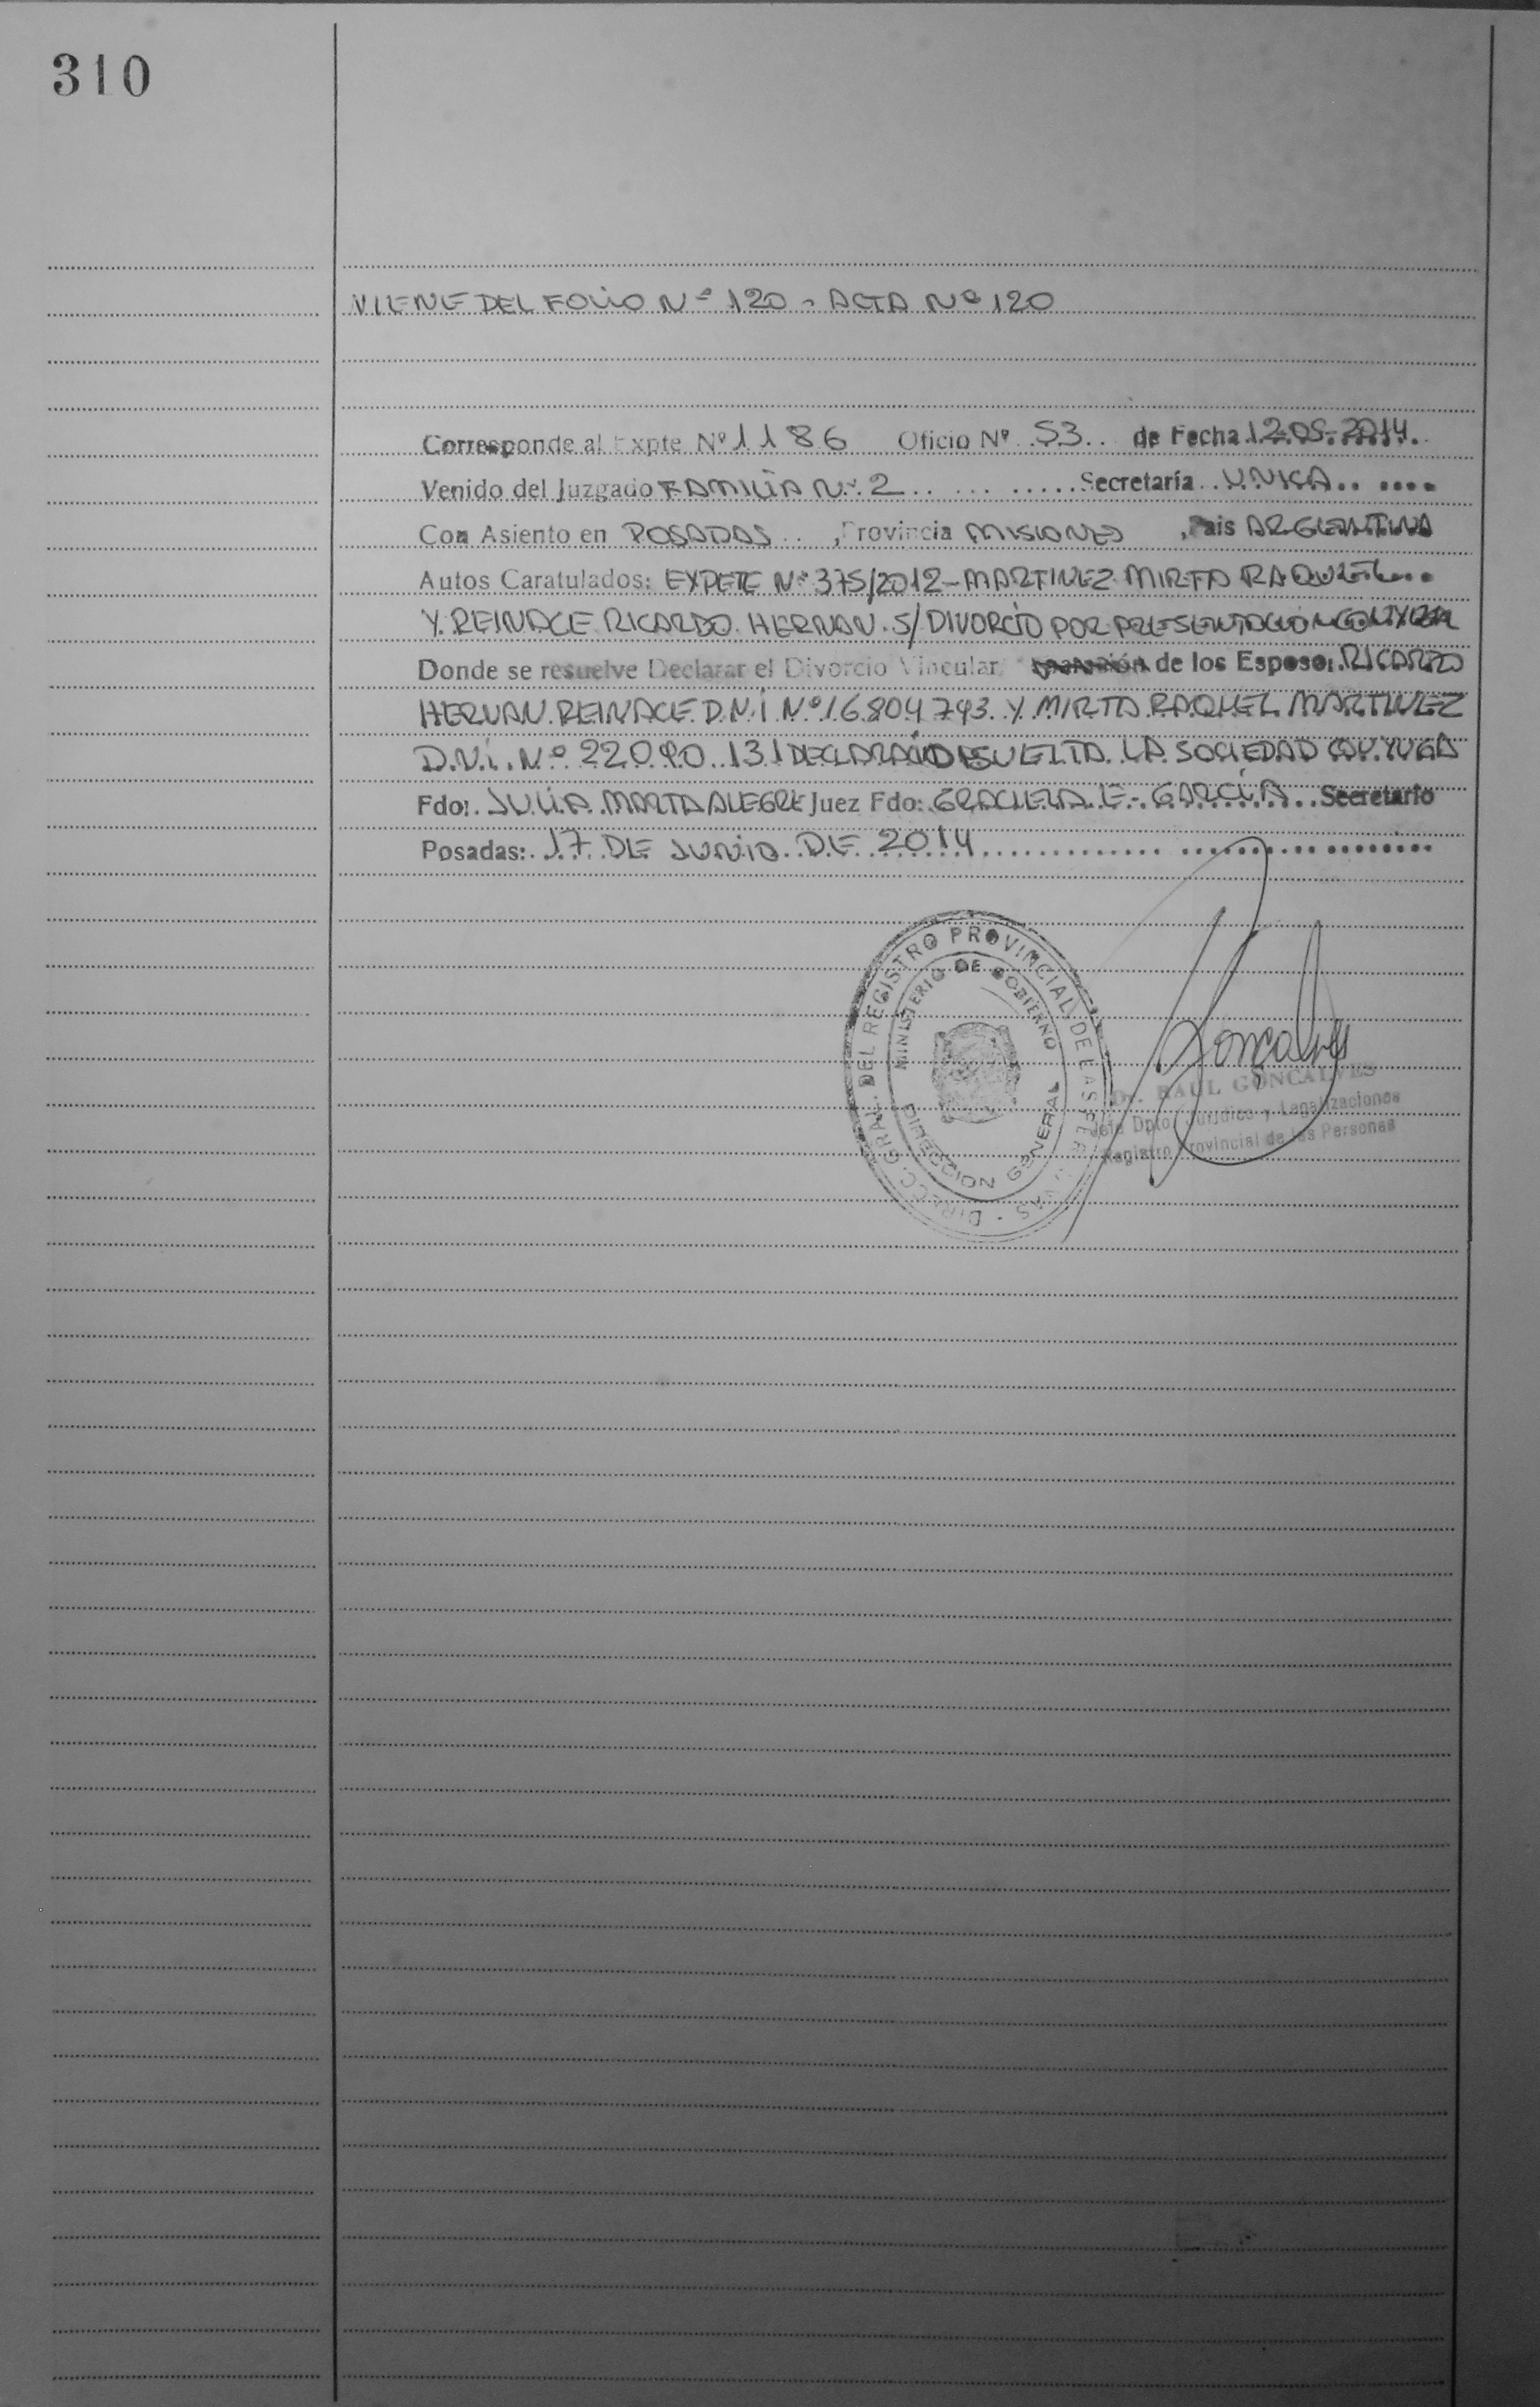 310
VIENE DEL FOLIO Nº 120 - ACTA Nº 120
Corresponde al Expte Nº 1186 Oficio Nº 53 de Fecha 12.05.2014.
Venido del Juzgado FAMILIA Nº 2 Secretaría UNICA
Con Asiento en POSADAS , Provincia MISIONES , Pais ARGENTINA
Autos Caratulados: EXPETE Nº 375/2012 - MARTINEZ MIRTA RAQUEL
Y REINACE RICARDO HERNAN S/ DIVORCIO POR PRESENTACION
Donde se resuelve Declarar el Divorcio Vincular de los Esposo: RICARDO
HERNAN REINACE D.N.I Nº 16804743 Y MIRTA RAQUEL MARTINEZ
D.N.I. Nº 22090131 LA SOCIEDAD
Fdo: JULIA MARTA ALEGRE Juez Fdo: GRACIELA E. GARCIA Secretario
Posadas: 17 DE JUNIO DE 2014
DIRECC. GRAL. DEL REGISTRO PROVINCIAL DE LAS PERSONAS
MINISTERIO DE GOBIERNO
DIRECCION GENERAL
Goncalves
Dr. RAUL GONCALVES
Jefe Dpto. Jurídico y Legalizaciones
Registro Provincial de las Personas